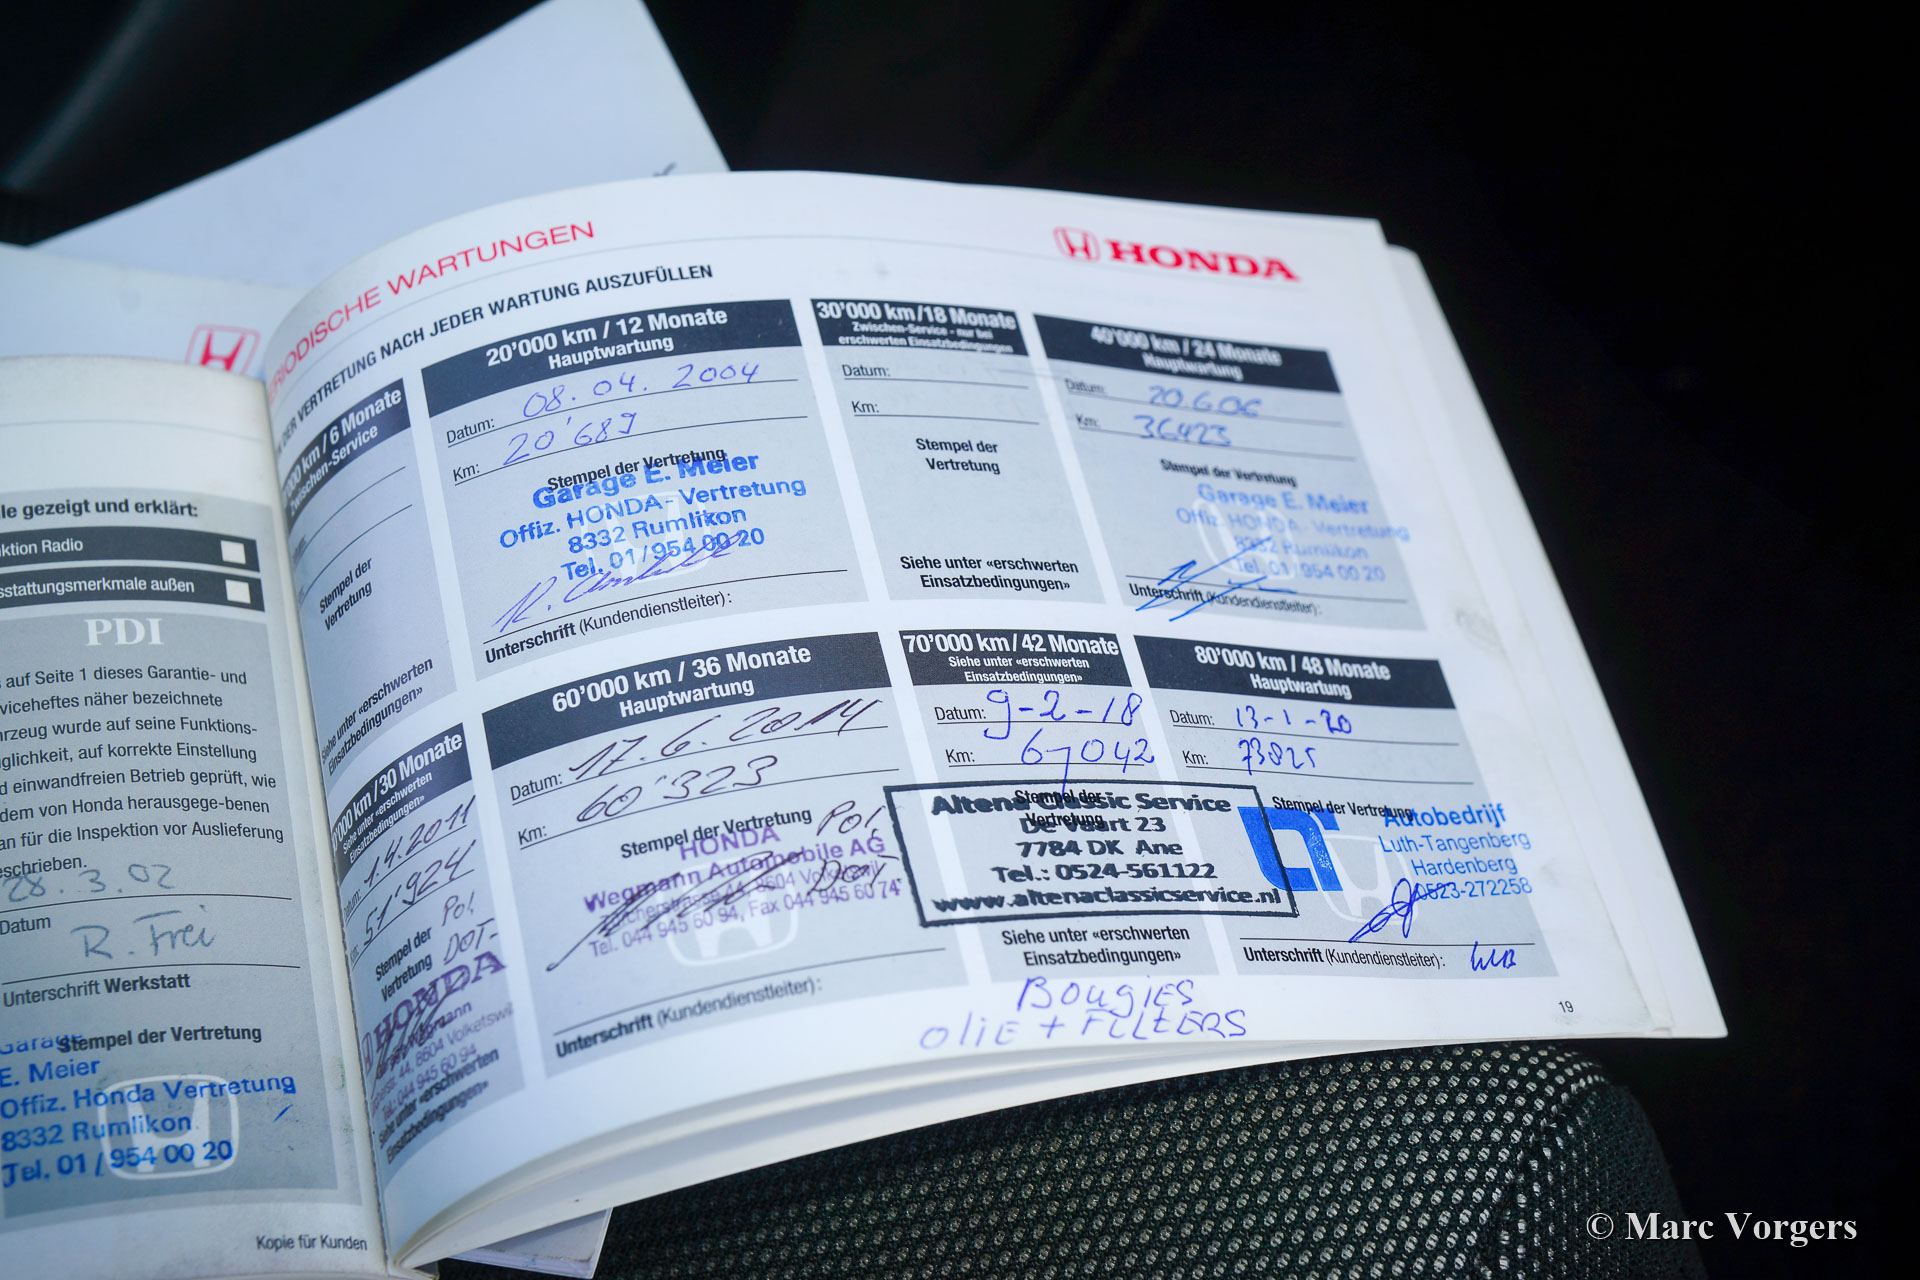 le gezeigt und erklärt:
ktion Radio
sstattungsmerkmale außen
PDI
auf Seite 1 dieses Garantie- und
viceheftes näher bezeichnete
hrzeug wurde auf seine Funktions-
glichkeit, auf korrekte Einstellung
d einwandfreien Betrieb geprüft, wie
dem von Honda herausgege-benen
an für die Inspektion vor Auslieferung
schrieben.
28.3.02
Datum
R. Frei
Unterschrift Werkstatt
Stempel der Vertretung
Garage
E. Meier
Offiz. Honda Vertretung
8332 Rumlikon
Tel. 01/954 00 20
Kopie für Kunden
ERIODISCHE WARTUNGEN
HONDA
DER VERTRETUNG NACH JEDER WARTUNG AUSZUFÜLLEN
km / 6 Monate
Zwischen-Service
Stempel der
Vertretung
Siehe unter «erschwerten
Einsatzbedingungen»
20'000 km / 12 Monate
Hauptwartung
Datum: 08.04.2004
Km: 20'689
Stempel der Vertretung
Garage E. Meier
Offiz. HONDA-Vertretung
8332 Rumlikon
Tel. 01/954 00 20
Unterschrift (Kundendienstleiter):
30'000 km/18 Monate
Zwischen-Service - nur bei
erschwerten Einsatzbedingungen
Datum:
Km:
Stempel der
Vertretung
Siehe unter «erschwerten
Einsatzbedingungen»
40'000 km / 24 Monate
Hauptwartung
Datum: 20.6.06
Km: 36423
Stempel der Vertretung
Garage E. Meier
Offiz. HONDA-Vertretung
8332 Rumlikon
Tel. 01/954 00 20
Unterschrift (Kundendienstleiter):
000 km/30 Monate
Siehe unter «erschwerten
Einsatzbedingungen»
1.4.2011
51'924
Stempel der
Vertretung
Pol.
DOT-
HONDA
8604 Volketswil
Tel. 044 945 60 94
Siehe unter «erschwerten
Einsatzbedingungen»
60'000 km / 36 Monate
Hauptwartung
Datum: 17.6.2014
Km: 60'323
Stempel der Vertretung
Pol.
DOT.
HONDA
Wegmann Automobile AG
8604 Volketswil
Tel. 044 945 60 94, Fax 044 945 60 74
Unterschrift (Kundendienstleiter):
70'000 km/42 Monate
Siehe unter «erschwerten
Einsatzbedingungen»
Datum: 9-2-18
Km: 67042
Stempel der
Vertretung
Altena Classic Service
De Vaart 23
7784 DK Ane
Tel.: 0524-561122
www.altenaclassicservice.nl
Siehe unter «erschwerten
Einsatzbedingungen»
BOUGIES
OLIE + FILTERS
80'000 km / 48 Monate
Hauptwartung
Datum: 13-1-20
Km: 73825
Stempel der Vertretung
Autobedrijf
Luth-Tangenberg
Hardenberg
0523-272258
Unterschrift (Kundendienstleiter):
19
© Marc Vorgers